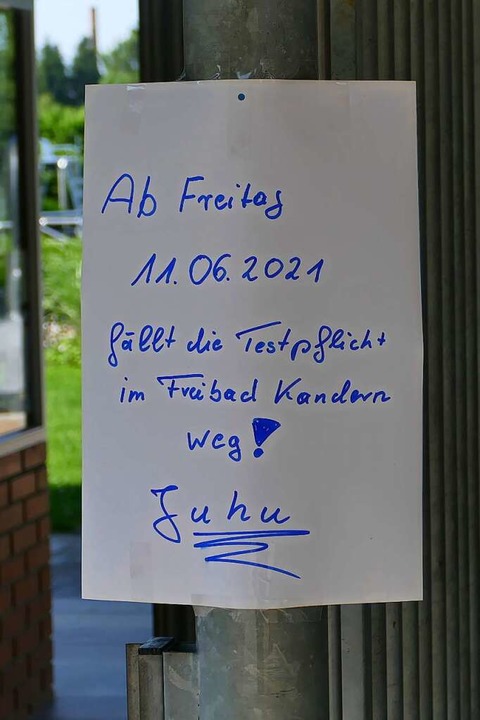 Ab Freitag
11.06.2021
fällt die Testpflicht
im Freibad Kandern
weg!
Juhu